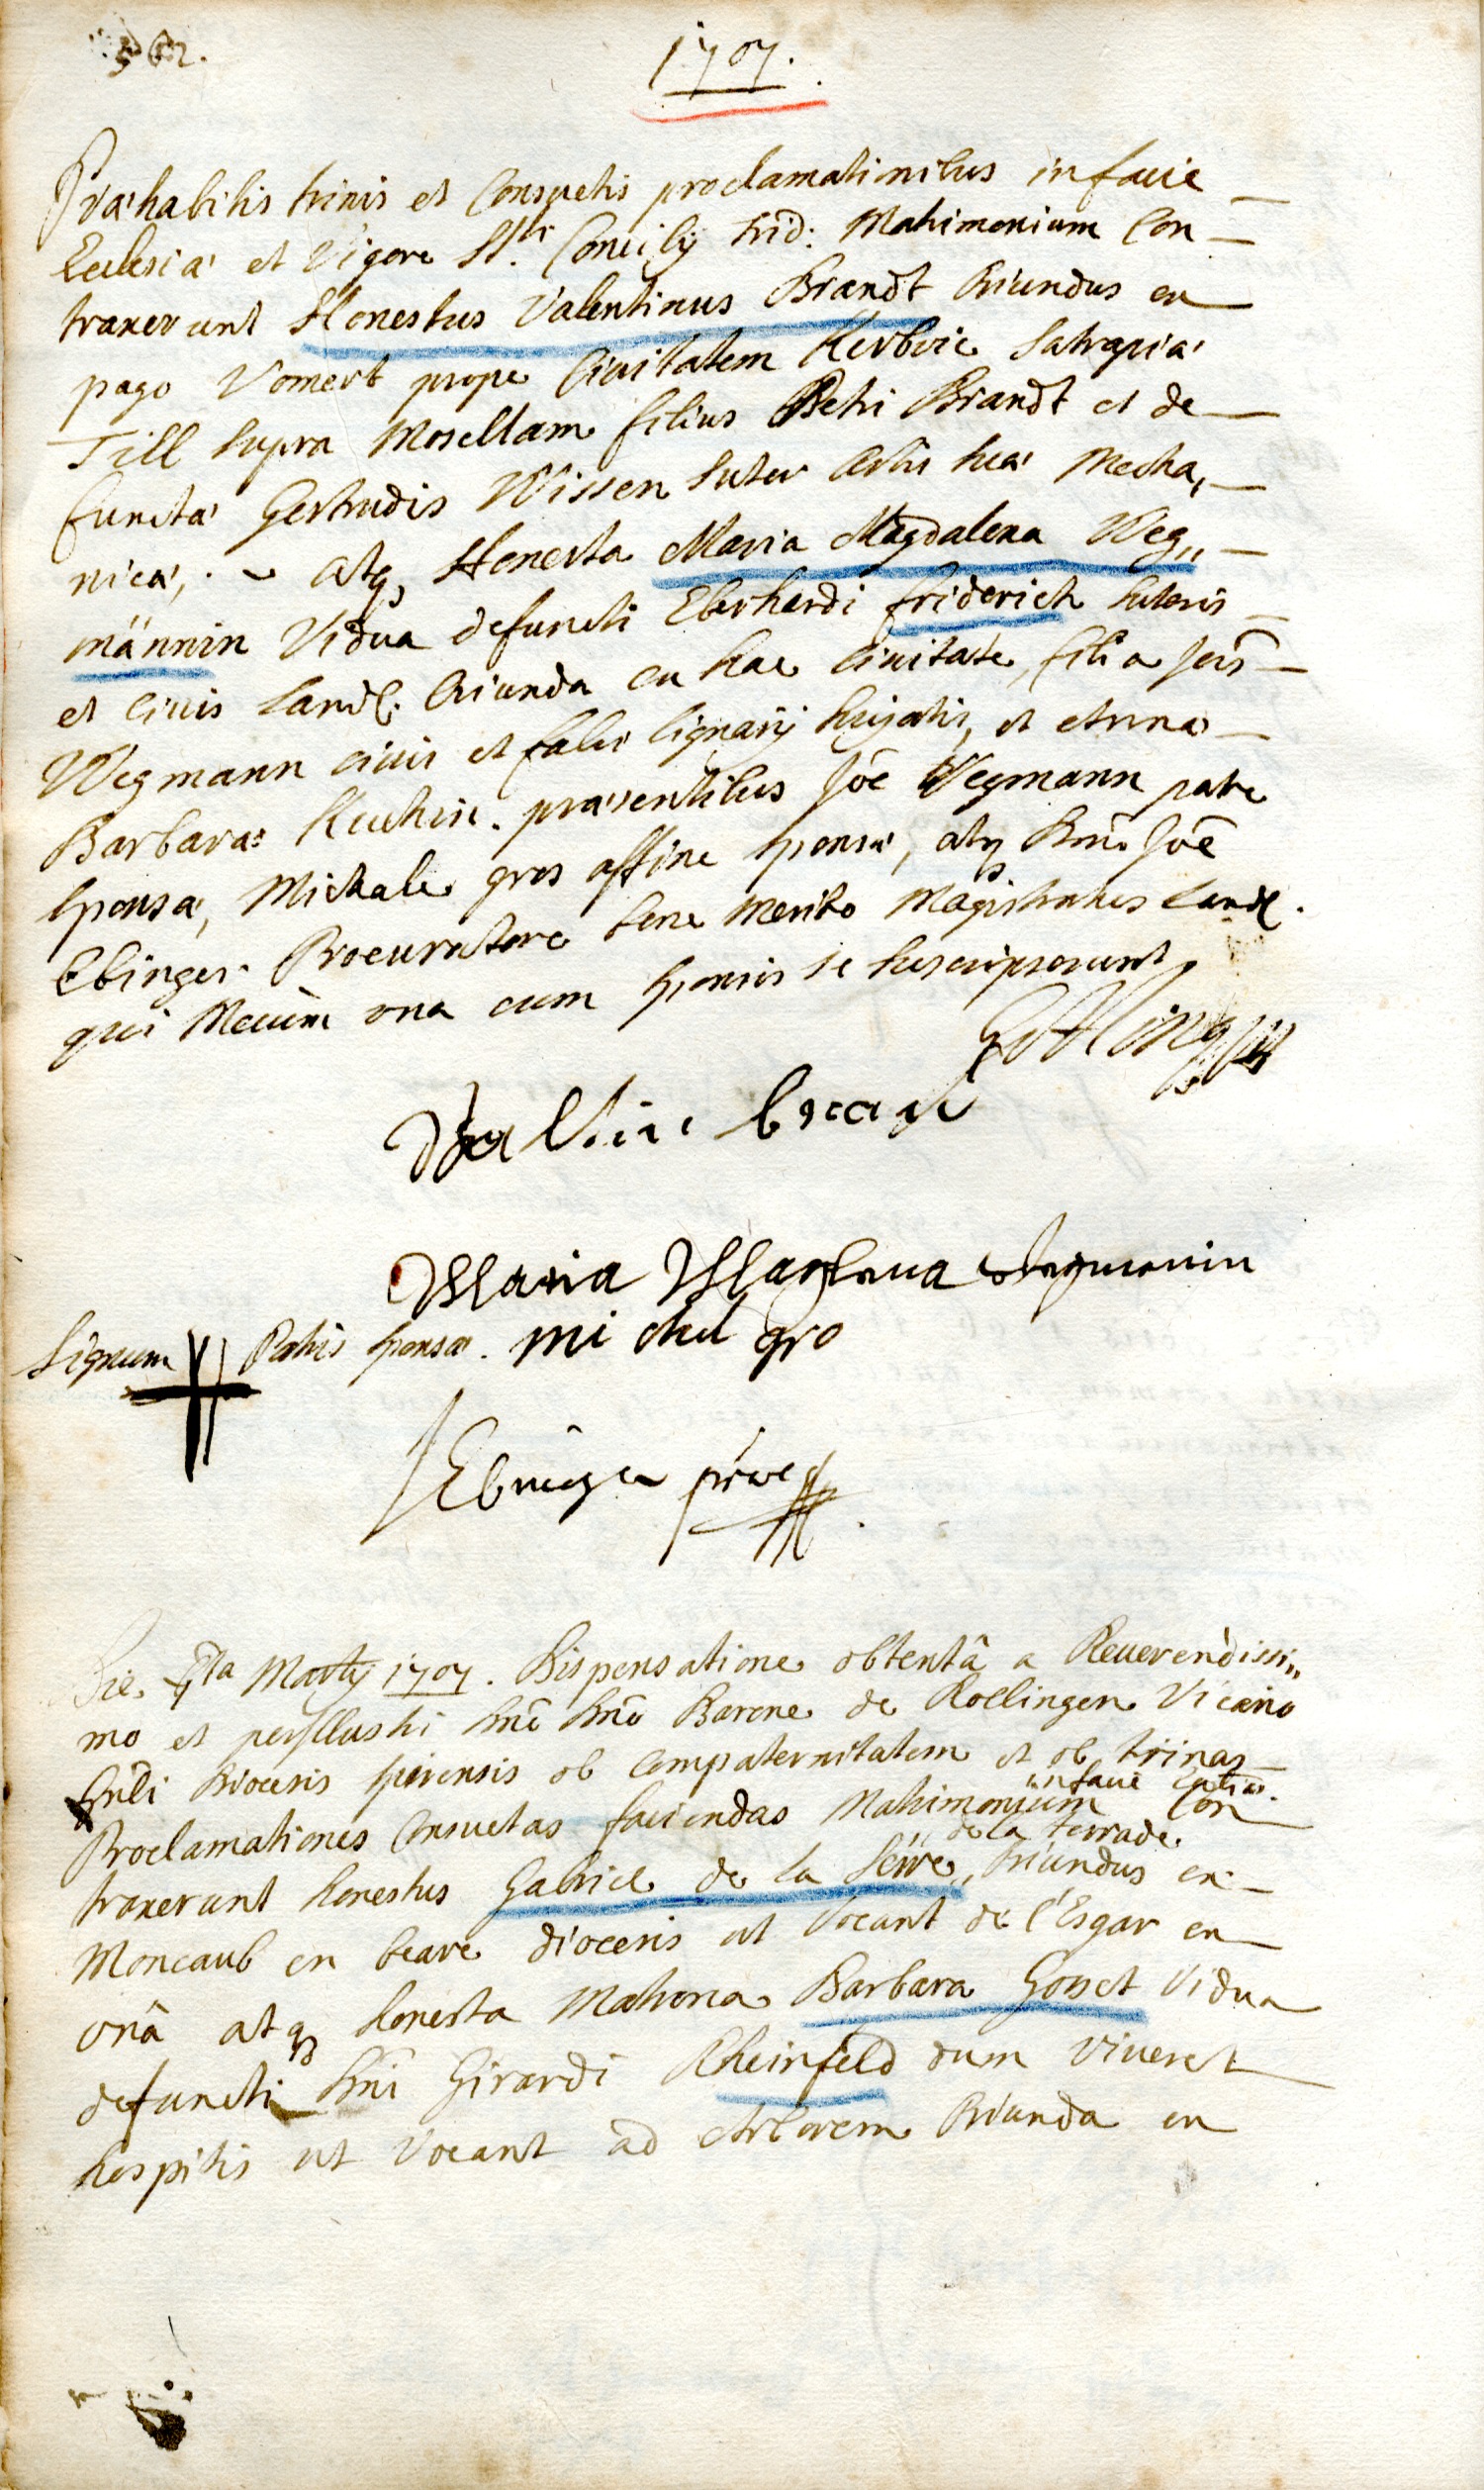 562.
1707.
Præhabitis trinis et Consuetis proclamationibus in facie
Ecclesiæ et Vigore Sti. Concilij trid: Matrimonium Con-
traxerunt Honestus Valentinus Brandt Oriundus ex
pago Vomert prope Civitatem Kerbrie Satrapiæ
Till supra Mosellam filius Petri Brandt et de-
functæ Gertrudis Wissen Sutor Artis suæ Mecha,,
nicæ, atq, Honesta Maria Magdalena Weg,,
männin Vidua defuncti Eberhardi friderich sutoris
et Civis Land. Oriunda ex hac Civitate, filia Jois
Wegmann civis et fabri lignarij hujatis, et Annæ
Barbaræ Kuchin. præsentibus Jôe Wegmann patre
sponsæ, Michale gros affine sponsæ, atq Dno. Jôe
Ebinger Procuratore bene Merito Magistratus Land.
qui Mecùm una cum sponsis se subscripserunt
Valtin brant
Maria Maglena Wegmanin
Signum Patris sponsæ. mi chel gro
J Ebinger proc
Die 7ta Martij 1707. Dispensatione obtentâ a Reuerendissi,,
mo et perjllustri Dnô Dnô Barone de Rollingen Vicario
Gnli Diocesis spirensis ob Compaternitatem et ob trinas
in facie Ecclias.
Proclamationes Consuetas faciendas Matrimonium Con
de la terrade
traxerunt honestus Gabriel de la Serre,, Oriundus ex
Moncaub en beare diocesis ut Vocant de l'Esgar ex
unâ atq honesta Matrona Barbara Gosset Vidua
defuncti Dni Girardi Rheinfeld dum Viueret
hospitis ut Vocant ad Arborem Oriunda ex